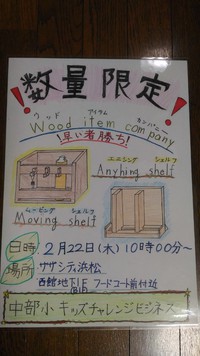 数量限定
ウッド アイテム カンパニー
Wood item company
早い者勝ち!
エニシング シェルフ
Anyhing shelf
ムービング シェルフ
Moving shelf
日時 2月22日(木)10時00分〜
場所 サザンティ浜松
西館地下1F フードコート前付近
中部小キッズチャレンジビジネス